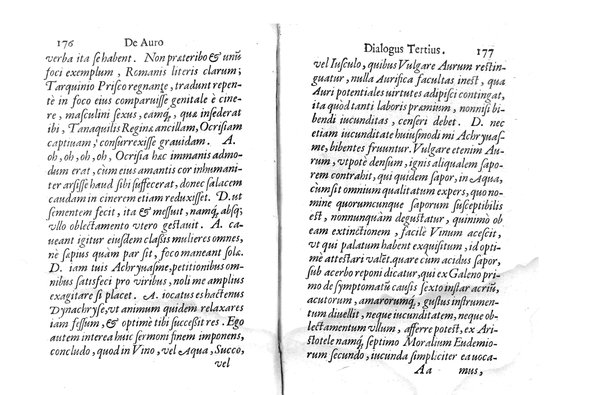 176 De Auro
verba ita se habent. Non præteribo & unũ
foci exemplum, Romanis literis clarum;
Tarquinio Prisco regnante, tradunt repen-
tè in foco eius comparuisse genitale è cine-
re, masculini sexus, eamq́, quæ insederat
ibi, Tanaquilis Reginæ ancillam, Ocrisiam
captiuam, consurrexisse grauidam. A.
oh, oh, oh, oh, Ocrisia hac immanis admo-
dum erat, cum eius amantis cor inhumani-
ter arsisse haud sibi suffecerat, donec salacem
caudam in cinerem etiam reduxisset. D. ut
sementem fecit, ita & messuit, namq́, absq́;
ullo oblectamento utero gestauit. A. ca-
ueant igitur eiusdem classis mulieres omnes,
nè sapius quàm par sit, foco maneant solæ.
D. iam tuis Achryuasme, petitionibus om-
nibus satisfeci pro viribus, noli me amplius
exagitare si placet. A. iocatus es hactenus
Dynachryse, vt animum quidem relaxares
iam fessum, & optimè tibi successit res. Ego
autem interea huic sermoni finem imponens,
concludo, quod in Vino, vel Aqua, Succo,
vel
Dialogus Tertius. 177
vel Iusculo, quibus Vulgare Aurum restin-
guatur, nulla Aurifica facultas inest, qua
Auri potentiales urtutes adipisci contingat,
ita quod tanti laboris præmium, nonnisi bi-
bendi iucunditas, censeri debet. D. nec
etiam iucunditate huiusmodi mi Achryuas-
me, bibentes fruuntur. Vulgare etenim Au-
rum, vtpotè densum, ignis aliqualem sapo-
rem contrabit, qui quidem sapor, in Aqua,
cum sit omnium qualitatum expers, quo no-
mine quorumcunque saporum susceptibilis
est, nonnunquàm degustatur, quinimò ob
eam extinctionem, facilè Vinum acescit,
vt qui palatum habent exquisitum, id opti-
mè attestari valēt. quare cum acidus sapor,
sub acerbo reponi dicatur, qui ex Galeno pri-
mo de symptomatũ causis sexto instar acriũ,
acutorum, amarorumq́, gustus instrumen-
tum diuellit, neque iucunditatem, neque ob-
lectamentum vllum, afferre potest, ex Ari-
stotele namq́, septimo Moralium Eudemio-
rum secundo, iucunda simpliciter ea voca-
Aa mus,